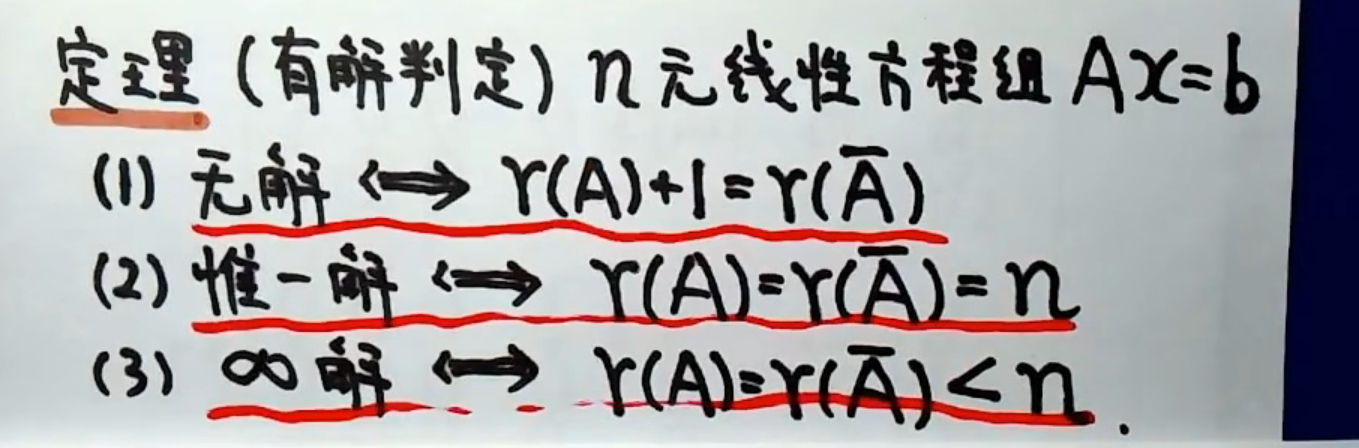 定理（有解判定）n元线性方程组 Ax=b
(1) 无解 ⟺ r(A)+1=r(Ā)
(2) 惟一解 ⟺ r(A)=r(Ā)=n
(3) ∞解 ⟺ r(A)=r(Ā)<n.